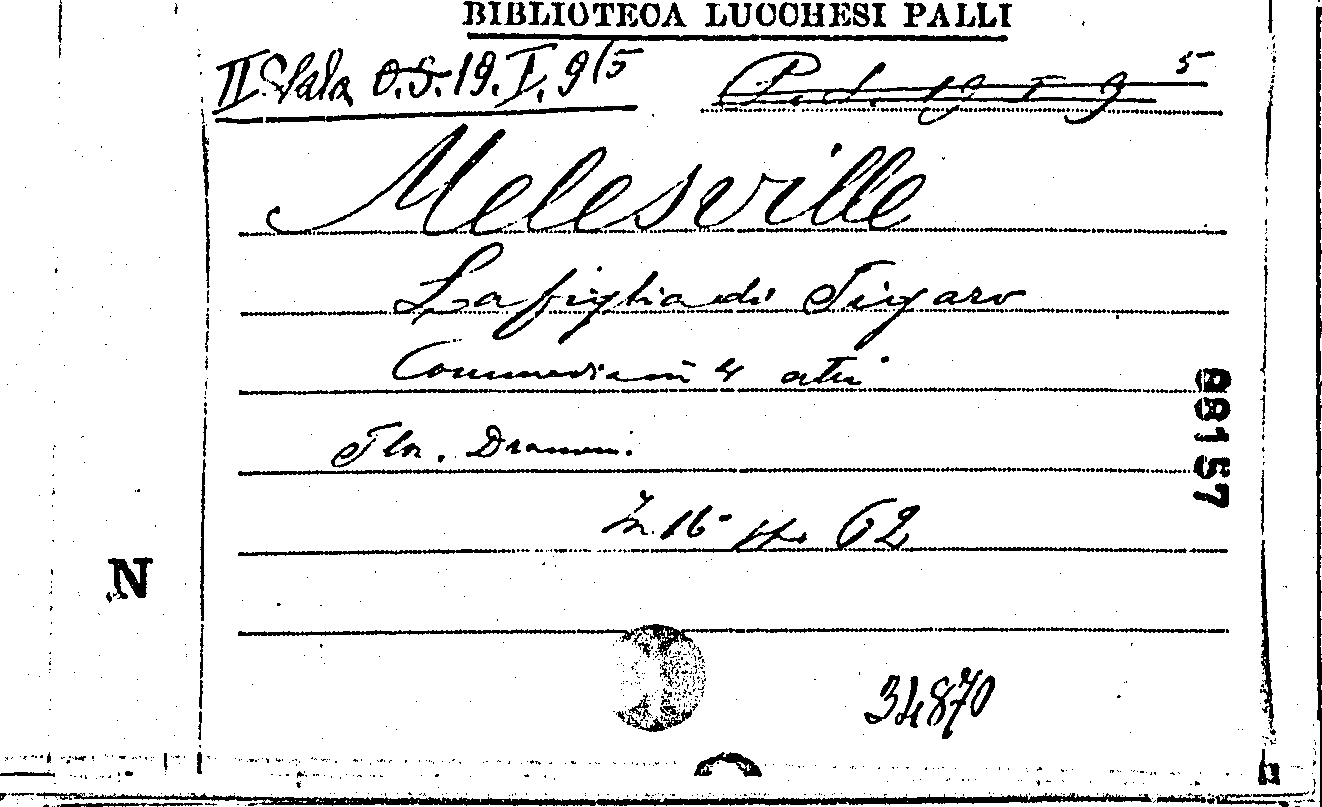 BIBLIOTECA LUCCHESI PALLI
II Sala O.S. 19. I. 9/5
P. S. 19 I 9 5
Melesville
La figlia di Figaro
Commedia in 4 atti
Flor. Dramm.
In 16° pp. 62
68157
N
34870